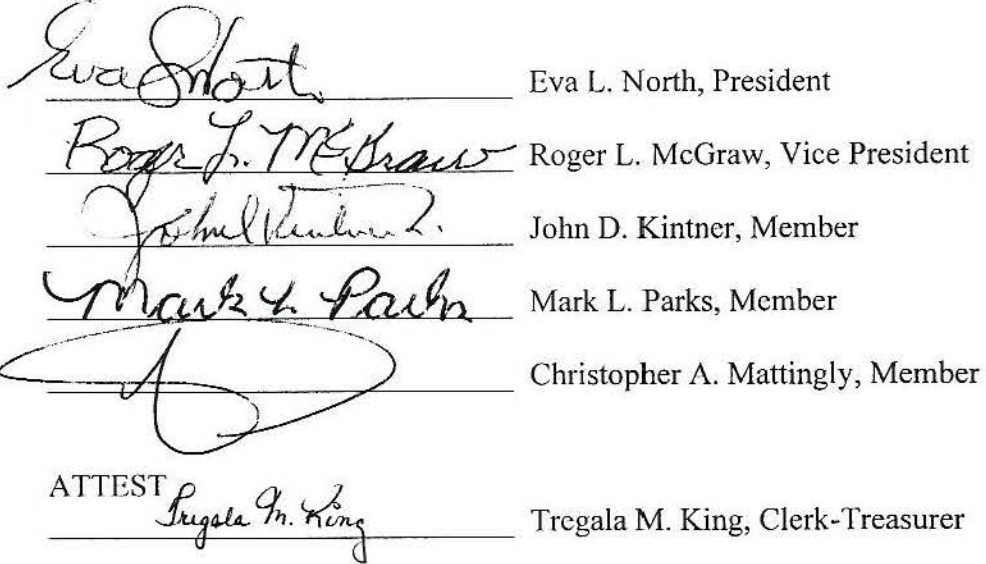 Eva L North Eva L. North, President
Roger L. McGraw Roger L. McGraw, Vice President
John D. Kintner, Member
Mark L Parks Mark L. Parks, Member
Christopher A. Mattingly, Member
ATTEST
Tregala M. King Tregala M. King, Clerk-Treasurer